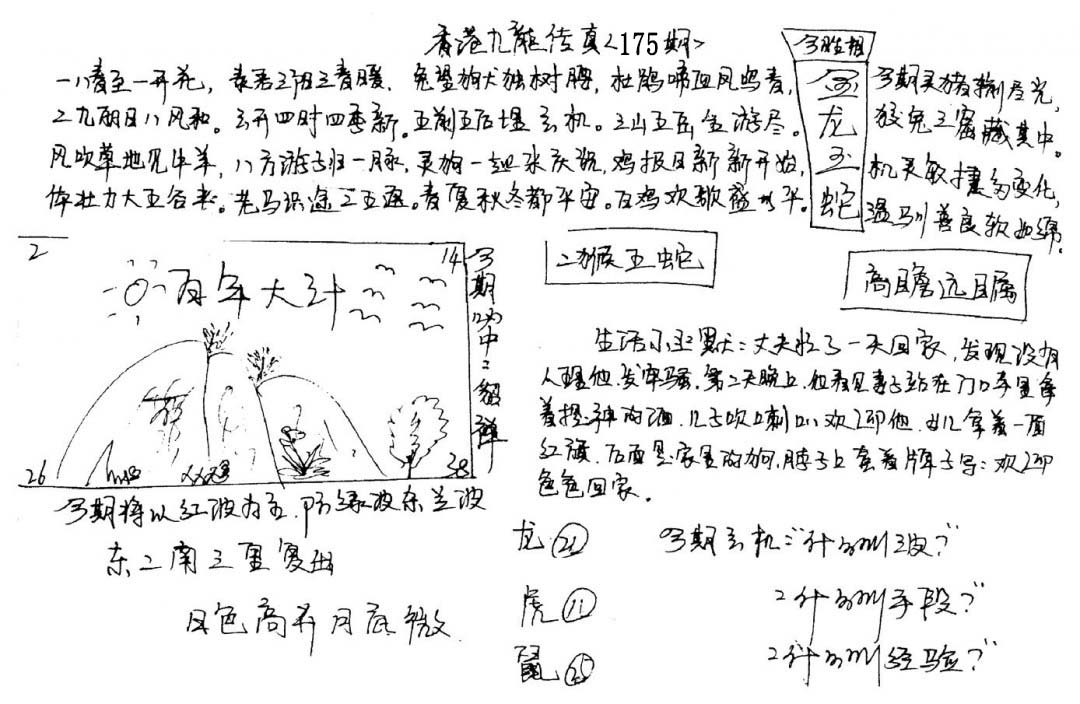 香港九龍传真<175期>
一八春至一开花，春暖，兔望狗犬独树脾，杜鹃啼血凤鸣春，
二九朝日八风和。云开四时四季新。五前五后埋玄机。三山五岳全游尽。
风吹草地见牛羊，八方游子归一脉，灵狗一起来庆祝，鸡报日新新开始，
体壮力大五谷来。老马识途二五通。春夏秋冬都平安。百鸡欢歌盛世平。
今期灵猪捌尽光，
狡兔三窟藏其中。
机灵敏捷多变化，
温驯善良软如绵。
金龙玉蛇
2
14
百年大计
26
38
今期
二猴五蛇
高瞻远瞩
今期将以红波为主，防绿波东兰波
东二南三里复出
日色高升月底微
生活小幽默：丈夫忙了一天回家，发现没有
人理他，发牢骚，第二天晚上，他看见妻子站在门口手里拿
着提神的酒，儿子吹口喇叭欢迎他，女儿拿着一面
红旗，后面是家里的狗，脖子上套着牌子写：欢迎
爸爸回家。
龙 21
虎 11
鼠 25
今期玄机：“什么叫三波？”
2什么叫手段？”
2什么叫经验？”